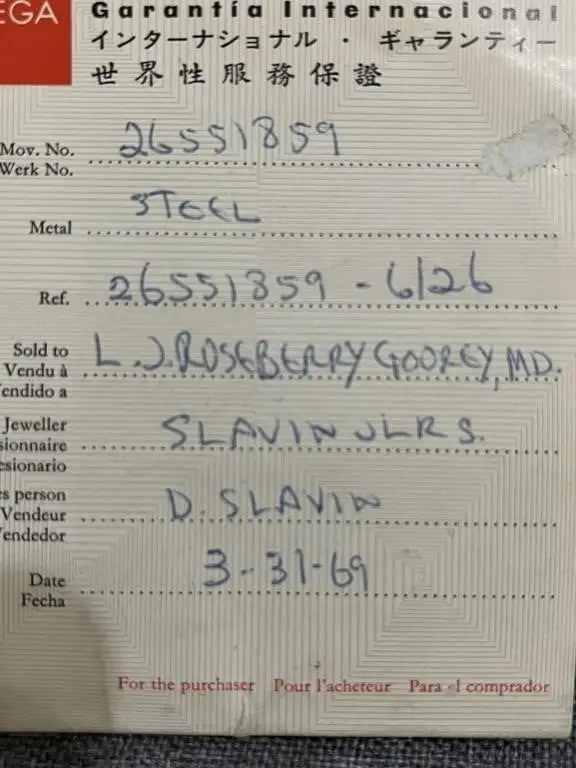 EGA
Garantía Internacional
インターナショナル · ギャランティー
世界性服務保證
Mov. No. 26551859
Werk No.
Metal STEEL
Ref. 26551859 - 6126
Sold to L. J. ROSEBERRY GOOREY, MD.
Vendu à
endido a
Jeweller SLAVIN JLRS.
sionnaire
esionario
s person D. SLAVIN
Vendeur
endedor
Date 3-31-69
Fecha
For the purchaser Pour l'acheteur Para l comprador